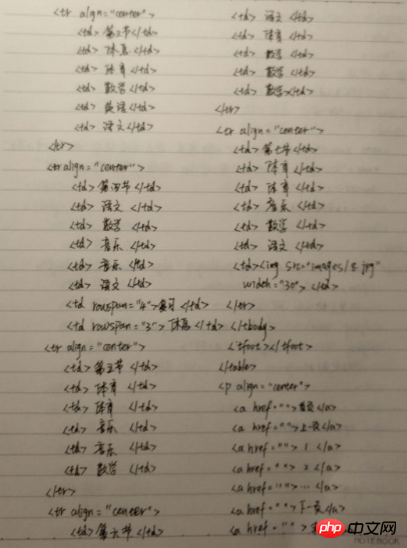 <tr align="center">
<td> 第三节 </td>
<td> 休息 </td>
<td> 体育 </td>
<td> 数学 </td>
<td> 英语 </td>
<td> 语文 </td>
</tr>
<tr align="center">
<td> 第四节 </td>
<td> 语文 </td>
<td> 数学 </td>
<td> 音乐 </td>
<td> 音乐 </td>
<td> 语文 </td>
<td rowspan="4"> 复习 </td>
<td rowspan="3"> 休息 </td>
<tr align="center">
<td> 第五节 </td>
<td> 体育 </td>
<td> 体育 </td>
<td> 音乐 </td>
<td> 音乐 </td>
<td> 数学 </td>
</tr>
<tr align="center">
<td> 第六节 </td>
<td> 语文 </td>
<td> 体育 </td>
<td> 数学 </td>
<td> 数学 </td>
<td> 数学 </td>
</tr>
<tr align="center">
<td> 第七节 </td>
<td> 体育 </td>
<td> 体育 </td>
<td> 音乐 </td>
<td> 数学 </td>
<td> 语文 </td>
<td><img src="images/
width="30"> </td>
</tr>
</tbody>
<tfoot></tfoot>
</table>
<p align="center">
<a href=""> 首页 </a>
<a href=""> 上一页 </a>
<a href=""> 1 </a>
<a href=""> 2 </a>
<a href=""> ... </a>
<a href=""> 下一页 </a>
<a href="">
php中文网
NOTEBOOK